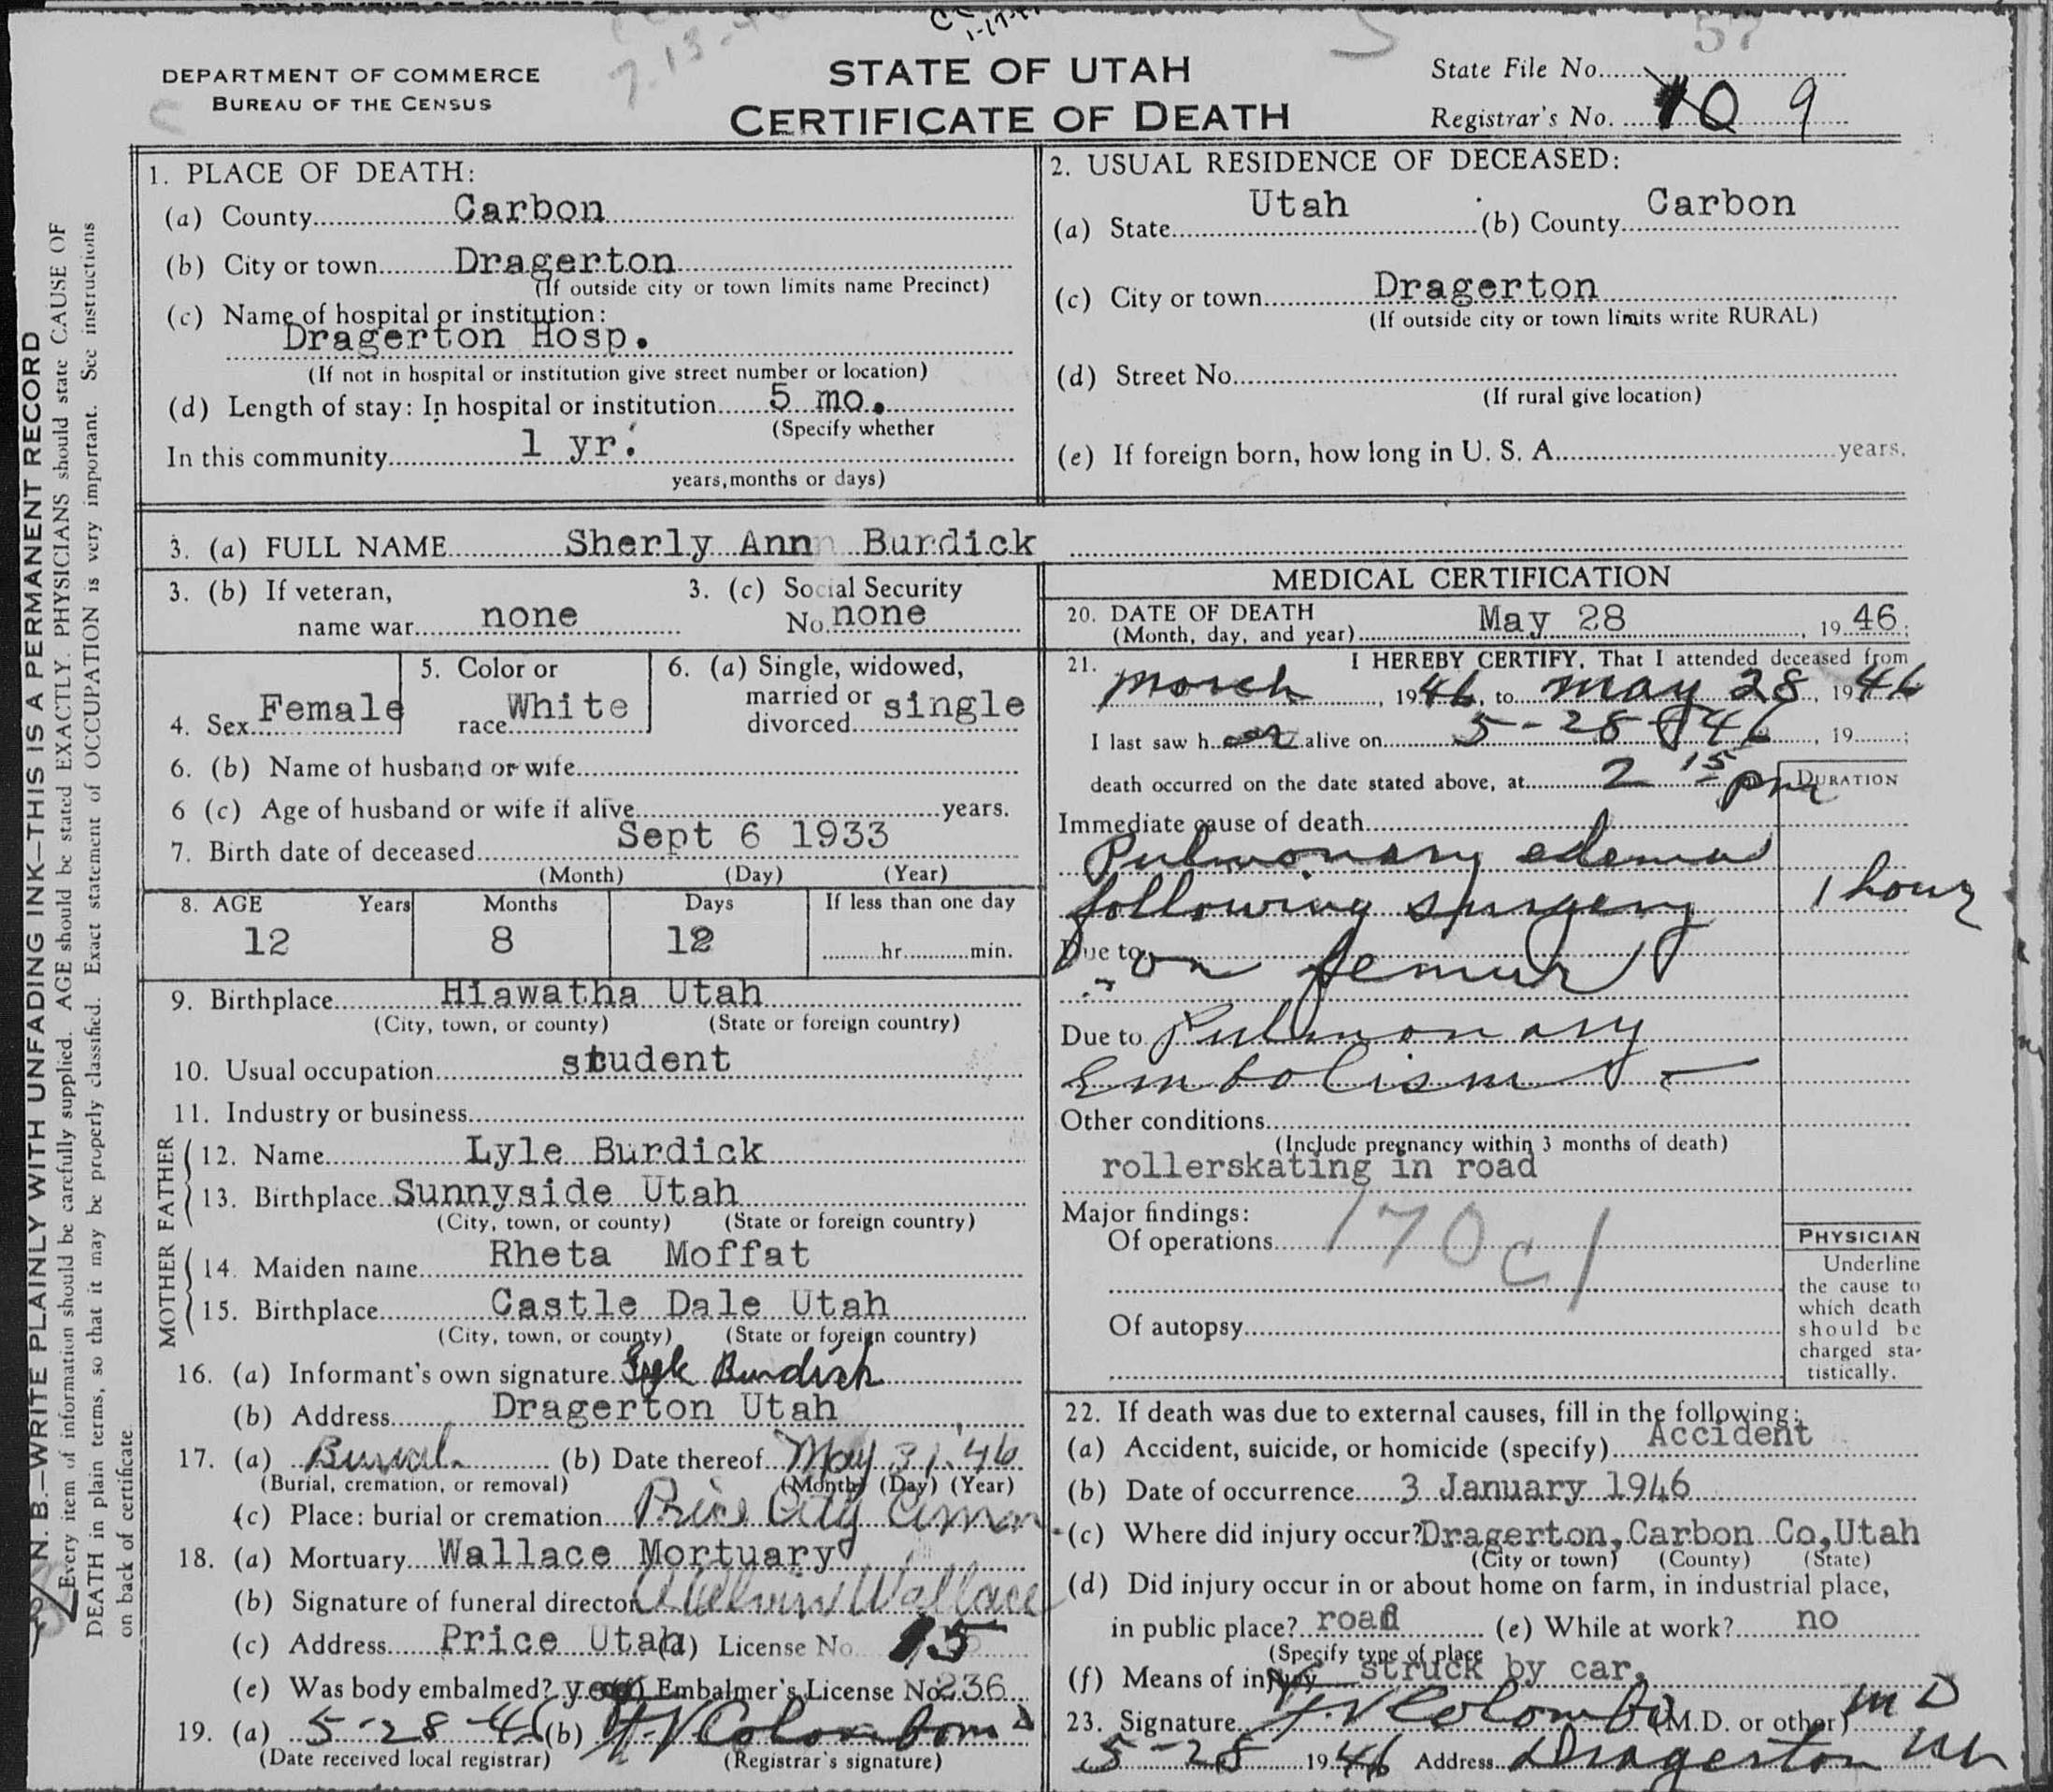 DEPARTMENT OF COMMERCE
BUREAU OF THE CENSUS
STATE OF UTAH
CERTIFICATE OF DEATH
State File No.
57
Registrar's No. 9
1. PLACE OF DEATH:
(a) County Carbon
(b) City or town Dragerton
(If outside city or town limits name Precinct)
(c) Name of hospital or institution:
Dragerton Hosp.
(If not in hospital or institution give street number or location)
(d) Length of stay: In hospital or institution 5 mo.
(Specify whether
In this community 1 yr.
years, months or days)
2. USUAL RESIDENCE OF DECEASED:
(a) State Utah (b) County Carbon
(c) City or town Dragerton
(If outside city or town limits write RURAL)
(d) Street No.
(If rural give location)
(e) If foreign born, how long in U. S. A. years.
3. (a) FULL NAME Sherly Ann Burdick
3. (b) If veteran,
name war none
3. (c) Social Security
No. none
4. Sex Female
5. Color or
race White
6. (a) Single, widowed,
married or
divorced single
6. (b) Name of husband or wife
6 (c) Age of husband or wife if alive years.
7. Birth date of deceased Sept 6 1933
(Month) (Day) (Year)
8. AGE Years Months Days If less than one day
12 8 12 hr. min.
9. Birthplace Hiawatha Utah
(City, town, or county) (State or foreign country)
10. Usual occupation student
11. Industry or business
FATHER
12. Name Lyle Burdick
13. Birthplace Sunnyside Utah
(City, town, or county) (State or foreign country)
MOTHER
14. Maiden name Rheta Moffat
15. Birthplace Castle Dale Utah
(City, town, or county) (State or foreign country)
16. (a) Informant's own signature Lyle Burdick
(b) Address Dragerton Utah
17. (a) Burial (b) Date thereof May 31, 46
(Burial, cremation, or removal) (Month) (Day) (Year)
(c) Place: burial or cremation Price City
18. (a) Mortuary Wallace Mortuary
(b) Signature of funeral director Wallace
(c) Address Price Utah (d) License No. 15
(e) Was body embalmed? yes Embalmer's License No. 236
19. (a) 5-28-46 (b) Colombo MD
(Date received local registrar) (Registrar's signature)
MEDICAL CERTIFICATION
20. DATE OF DEATH
(Month, day, and year) May 28, 1946;
21. I HEREBY CERTIFY, That I attended deceased from
March, 1946, to May 28, 1946
I last saw her alive on 5-28-46, 19 ;
death occurred on the date stated above, at 2 15 pm
DURATION
Immediate cause of death
Pulmonary edema
following surgery 1 hour
Due to on femur
Due to Pulmonary
Embolism
Other conditions
(Include pregnancy within 3 months of death)
rollerskating in road
Major findings:
Of operations
170c1
Of autopsy
PHYSICIAN
Underline
the cause to
which death
should be
charged sta-
tistically.
22. If death was due to external causes, fill in the following:
(a) Accident, suicide, or homicide (specify) Accident
(b) Date of occurrence 3 January 1946
(c) Where did injury occur? Dragerton, Carbon Co, Utah
(City or town) (County) (State)
(d) Did injury occur in or about home on farm, in industrial place,
in public place? road (e) While at work? no
(Specify type of place
(f) Means of injury struck by car.
23. Signature Colombo (M.D. or other) MD
5-28 1946 Address Dragerton
N. B.—WRITE PLAINLY WITH UNFADING INK—THIS IS A PERMANENT RECORD
Every item of information should be carefully supplied. AGE should be stated EXACTLY. PHYSICIANS should state CAUSE OF
DEATH in plain terms, so that it may be properly classified. Exact statement of OCCUPATION is very important. See instructions
on back of certificate.